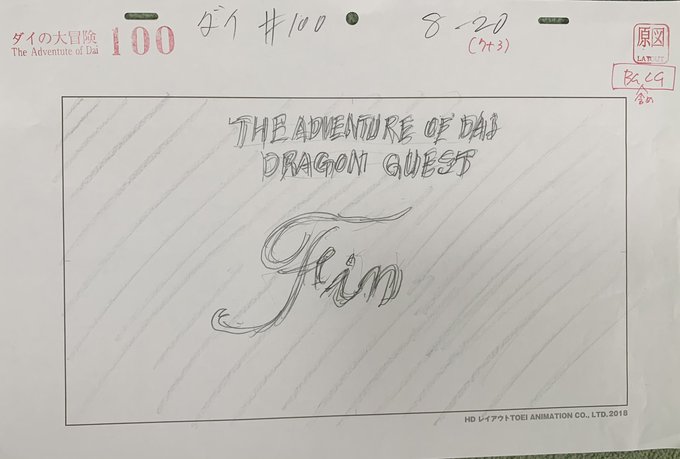 ダイの大冒険
The Adventure of Dai
100
ダイ #100
8 -20
(7+3)
原図
LAYOUT
BG CG
含め
THE ADVENTURE OF DAI
DRAGON QUEST
Fin
HD レイアウトTOEI ANIMATION CO., LTD. 2018